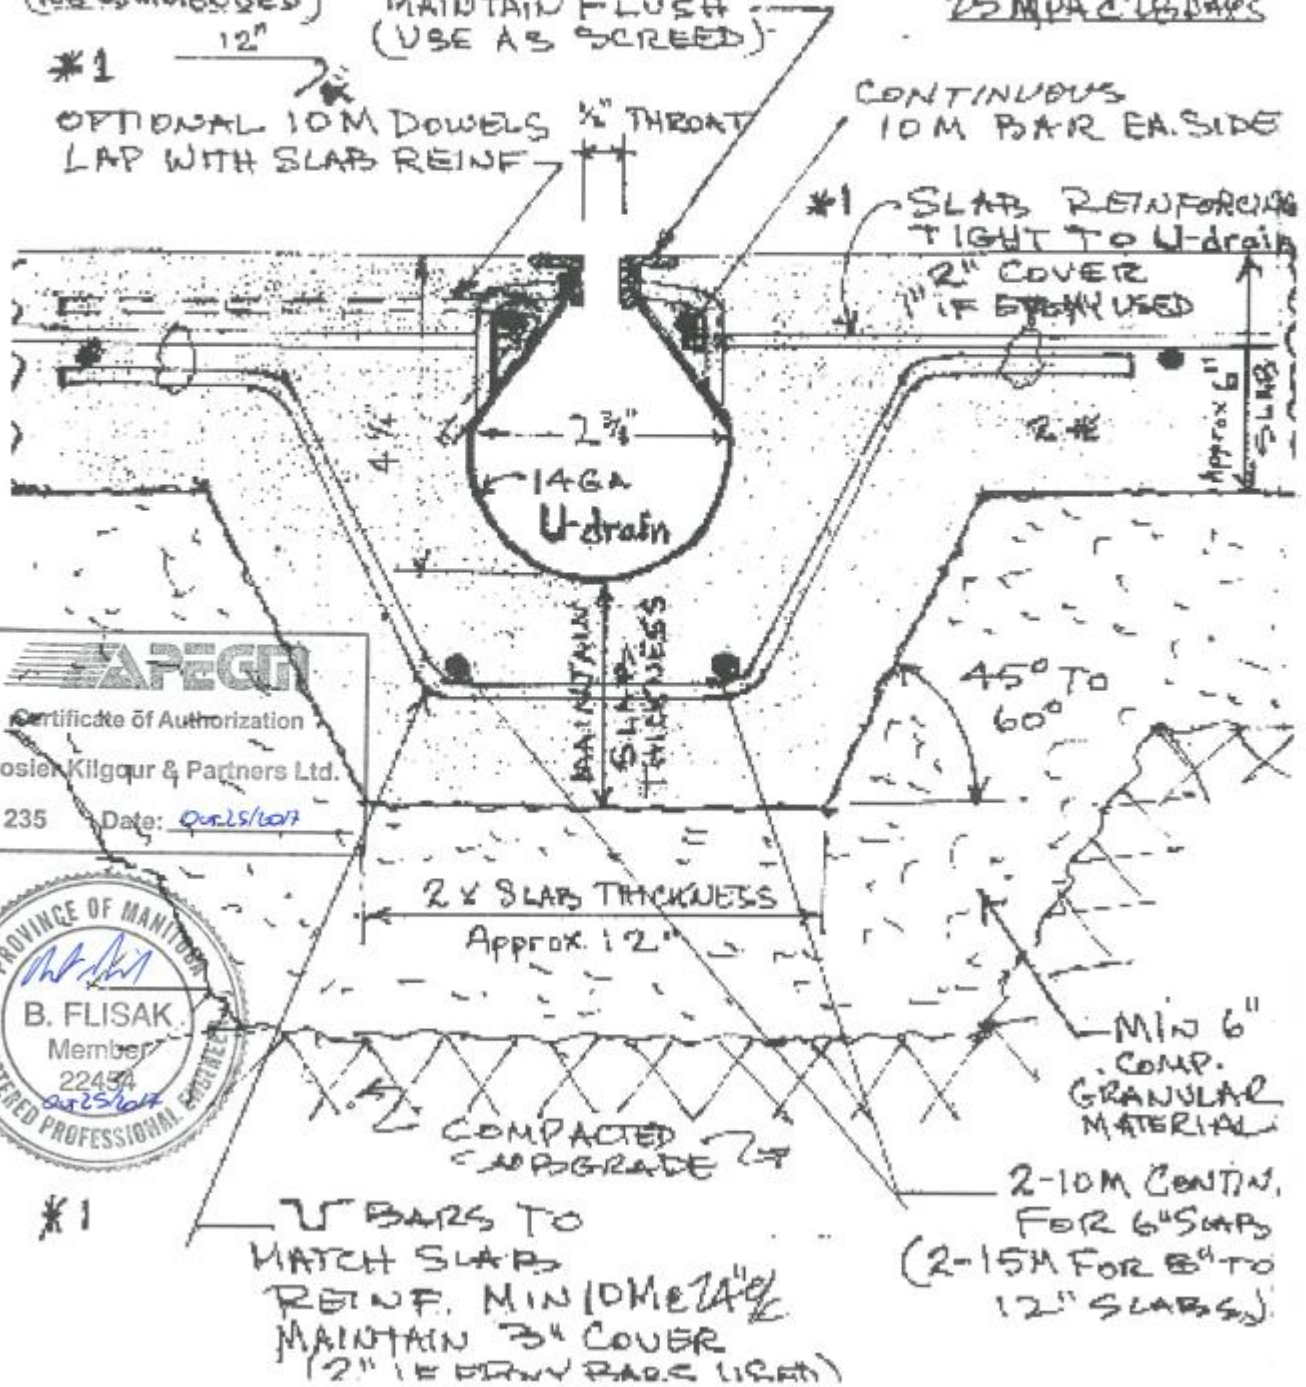 MAINTAIN FLUSH
(USE AS SCREED)
12"
*1
OPTIONAL 10M DOWELS
LAP WITH SLAB REINF
½" THROAT
CONTINUOUS
10M BAR EA. SIDE
*1
SLAB REINFORCING
TIGHT TO U-drain
2" COVER
1" IF EPOXY USED
Approx 6"
SLAB
4 ¼
2 ¾"
14GA
U-drain
MAINTAIN
SLAB
THICKNESS
45° TO
60°
APEGM
Certificate of Authorization
osier Kilgour & Partners Ltd.
235 Date:
2 x SLAB THICKNESS
Approx. 12"
PROVINCE OF MANITOBA
B. FLISAK
Member
22454
REGISTERED PROFESSIONAL ENGINEER
MIN 6"
COMP.
GRANULAR
MATERIAL
COMPACTED
SUBGRADE
*1
BARS TO
MATCH SLAB
REINF. MIN 10M @ 24" o/c
MAINTAIN 3" COVER
(2" IF EPOXY BARS USED)
2-10M CONTIN.
FOR 6" SLAB
(2-15M FOR 8" TO
12" SLABS)